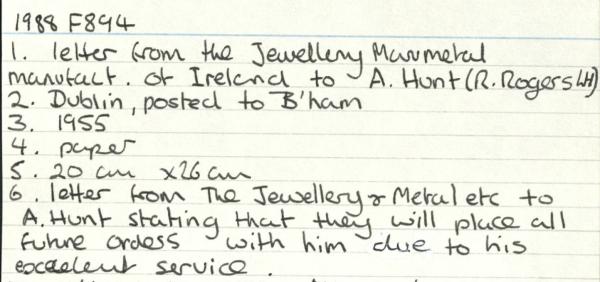 1988 F894
1. letter from the Jewellery Manmetal
manufact. of Ireland to A. Hunt (R. Rogers LH)
2. Dublin, posted to B'ham
3. 1955
4. paper
5. 20 cm x 26 cm
6. letter from The Jewellery & Metal etc to
A. Hunt stating that they will place all
future ordess with him due to his
excaelent service.